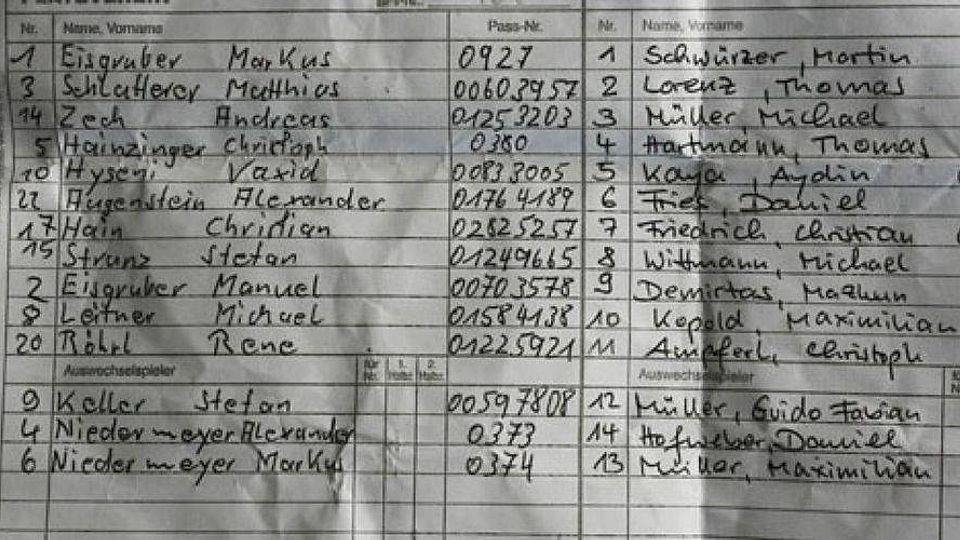 Nr. Name, Vorname Pass-Nr. Nr. Name, Vorname
1 Eisgruber Markus 0927 1 Schwürzer, Martin
3 Schlatterer Matthias 00603957 2 Lorenz, Thomas
14 Zech Andreas 01253203 3 Müller, Michael
5 Hainzinger Christoph 0380 4 Hartmann, Thomas
10 Hyseni Vaxid 00833005 5 Kaya, Aydin
22 Augenstein Alexander 01764189 6 Daniel
17 Hain Christian 02825257 7 Friedrich, Christian
15 Strunz Stefan 01249665 8 Wittmann, Michael
2 Eisgruber Manuel 00703578 9 Demirtas,
8 Leitner Michael 01584138 10 Kopold, Maximilian
20 Röhrl Rene 01225921 11 Ampferl, Christoph
Auswechselspieler für Nr. 1. Halbz. 2. Halbz. Auswechselspieler
9 Keller Stefan 00597808 12 Müller, Guido Fabian
4 Niedermeyer Alexander 0373 14 Hofweber, Daniel
6 Niedermeyer Markus 0374 13 Müller, Maximilian